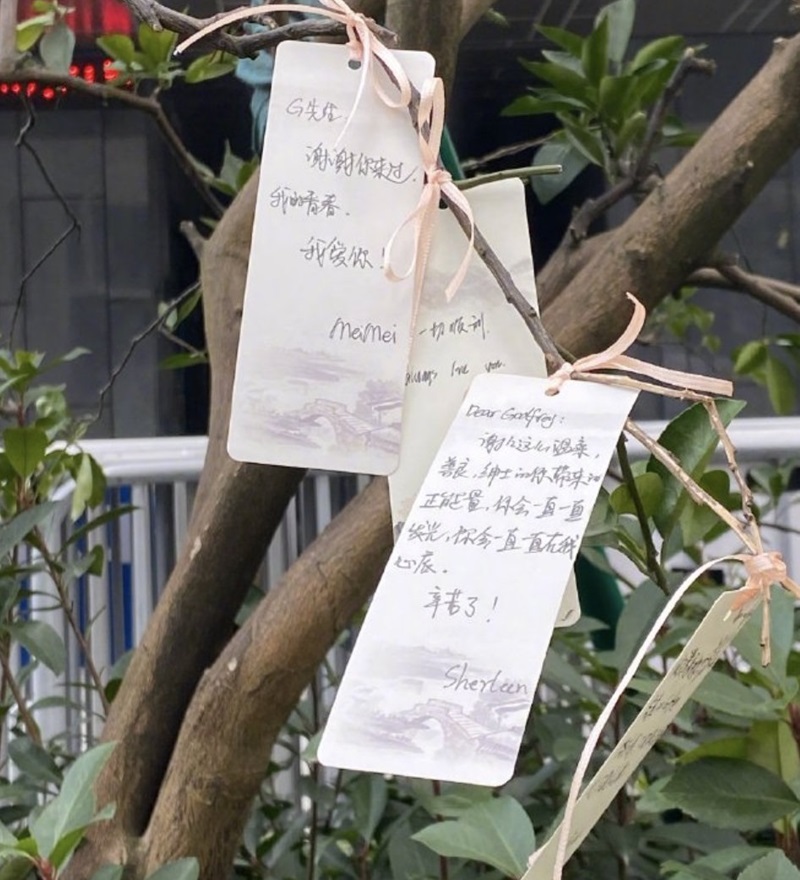 G先生.
谢谢你来过,
我的青春.
我爱你!
MeiMei
一切顺利.
always love you.
Dear Godfrey:
谢谢这么温柔,
善良,绅士的你带来的
正能量,你会一直一直
发光,你会一直一直在我
心底.
辛苦了!
Sherleen